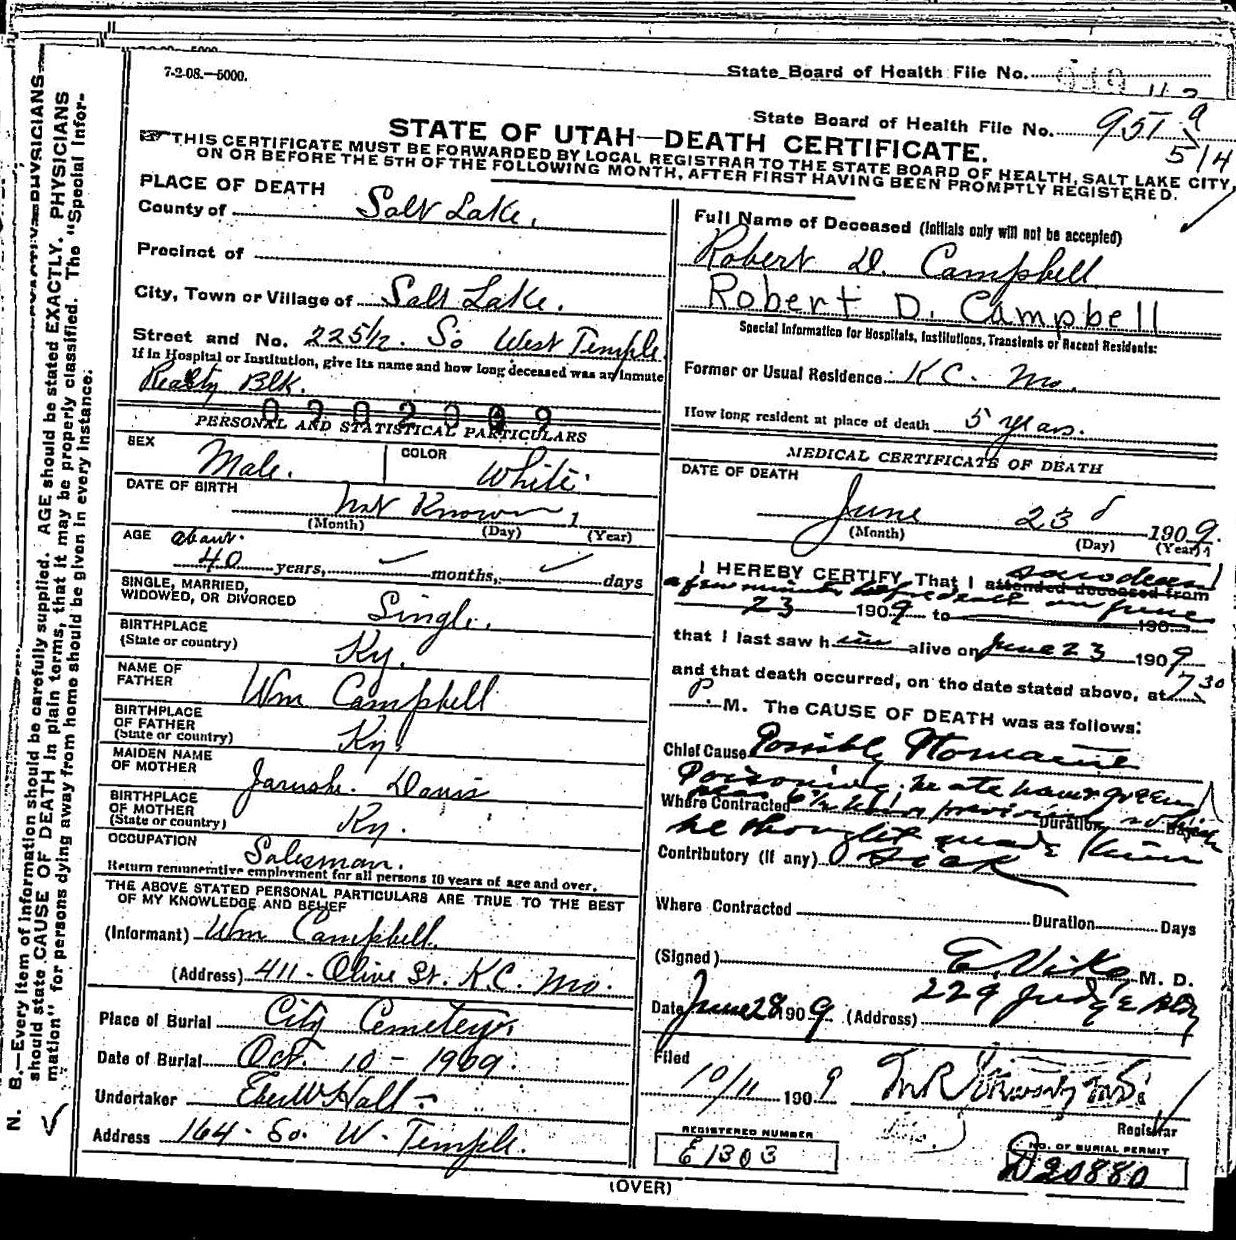 7-2-08.—5000.
State Board of Health File No.
State Board of Health File No. 951
5/4
STATE OF UTAH—DEATH CERTIFICATE.
THIS CERTIFICATE MUST BE FORWARDED BY LOCAL REGISTRAR TO THE STATE BOARD OF HEALTH, SALT LAKE CITY,
ON OR BEFORE THE 5TH OF THE FOLLOWING MONTH, AFTER FIRST HAVING BEEN PROMPTLY REGISTERED.
N. B.—Every item of information should be carefully supplied. AGE should be stated EXACTLY. PHYSICIANS
should state CAUSE OF DEATH in plain terms, that it may be properly classified. The "Special Infor-
mation" for persons dying away from home should be given in every instance.
PLACE OF DEATH
County of Salt Lake.
Precinct of
City, Town or Village of Salt Lake.
Street and No. 225½. So West Temple
If in Hospital or Institution, give its name and how long deceased was an inmate
Realty Blk.
PERSONAL AND STATISTICAL PARTICULARS
SEX Male. COLOR White.
DATE OF BIRTH Not Known 1
(Month) (Day) (Year)
AGE about
40 years, months, days
SINGLE, MARRIED,
WIDOWED, OR DIVORCED Single.
BIRTHPLACE
(State or country) Ky.
NAME OF
FATHER Wm Campbell
BIRTHPLACE
OF FATHER
(State or country) Ky.
MAIDEN NAME
OF MOTHER Davis
BIRTHPLACE
OF MOTHER
(State or country) Ky.
OCCUPATION Salesman.
Return remunerative employment for all persons 10 years of age and over.
THE ABOVE STATED PERSONAL PARTICULARS ARE TRUE TO THE BEST
OF MY KNOWLEDGE AND BELIEF
(Informant) Wm Campbell.
(Address) 411 - Olive St. K.C. Mo.
Place of Burial City Cemetery.
Date of Burial Oct. 10 - 1909.
Undertaker Eber W Hall
Address 164 - So. W. Temple.
Full Name of Deceased (Initials only will not be accepted)
Robert D. Campbell
Robert D. Campbell
Special Information for Hospitals, Institutions, Transients or Recent Residents:
Former or Usual Residence K C. Mo.
How long resident at place of death 5 years.
MEDICAL CERTIFICATE OF DEATH
DATE OF DEATH
June 23d 1909.
(Month) (Day) (Year)
I HEREBY CERTIFY, That I attended deceased from
saw deceased
a few minutes before death on June
23 1909 to 190
that I last saw him alive on June 23 1909
and that death occurred, on the date stated above, at 7 30
P. M. The CAUSE OF DEATH was as follows:
Chief Cause Possibly Ptomaine
Poisoning. he ate
Where Contracted Duration Days
he thought made him
Contributory (if any) Sick
Where Contracted Duration Days
(Signed) E. Viko M. D.
Date June 28 1909 (Address) 229 Judge Bldg
Filed
10/11 1909
Registrar
REGISTERED NUMBER
E 1303
NO. OF BURIAL PERMIT
D20880
(OVER)